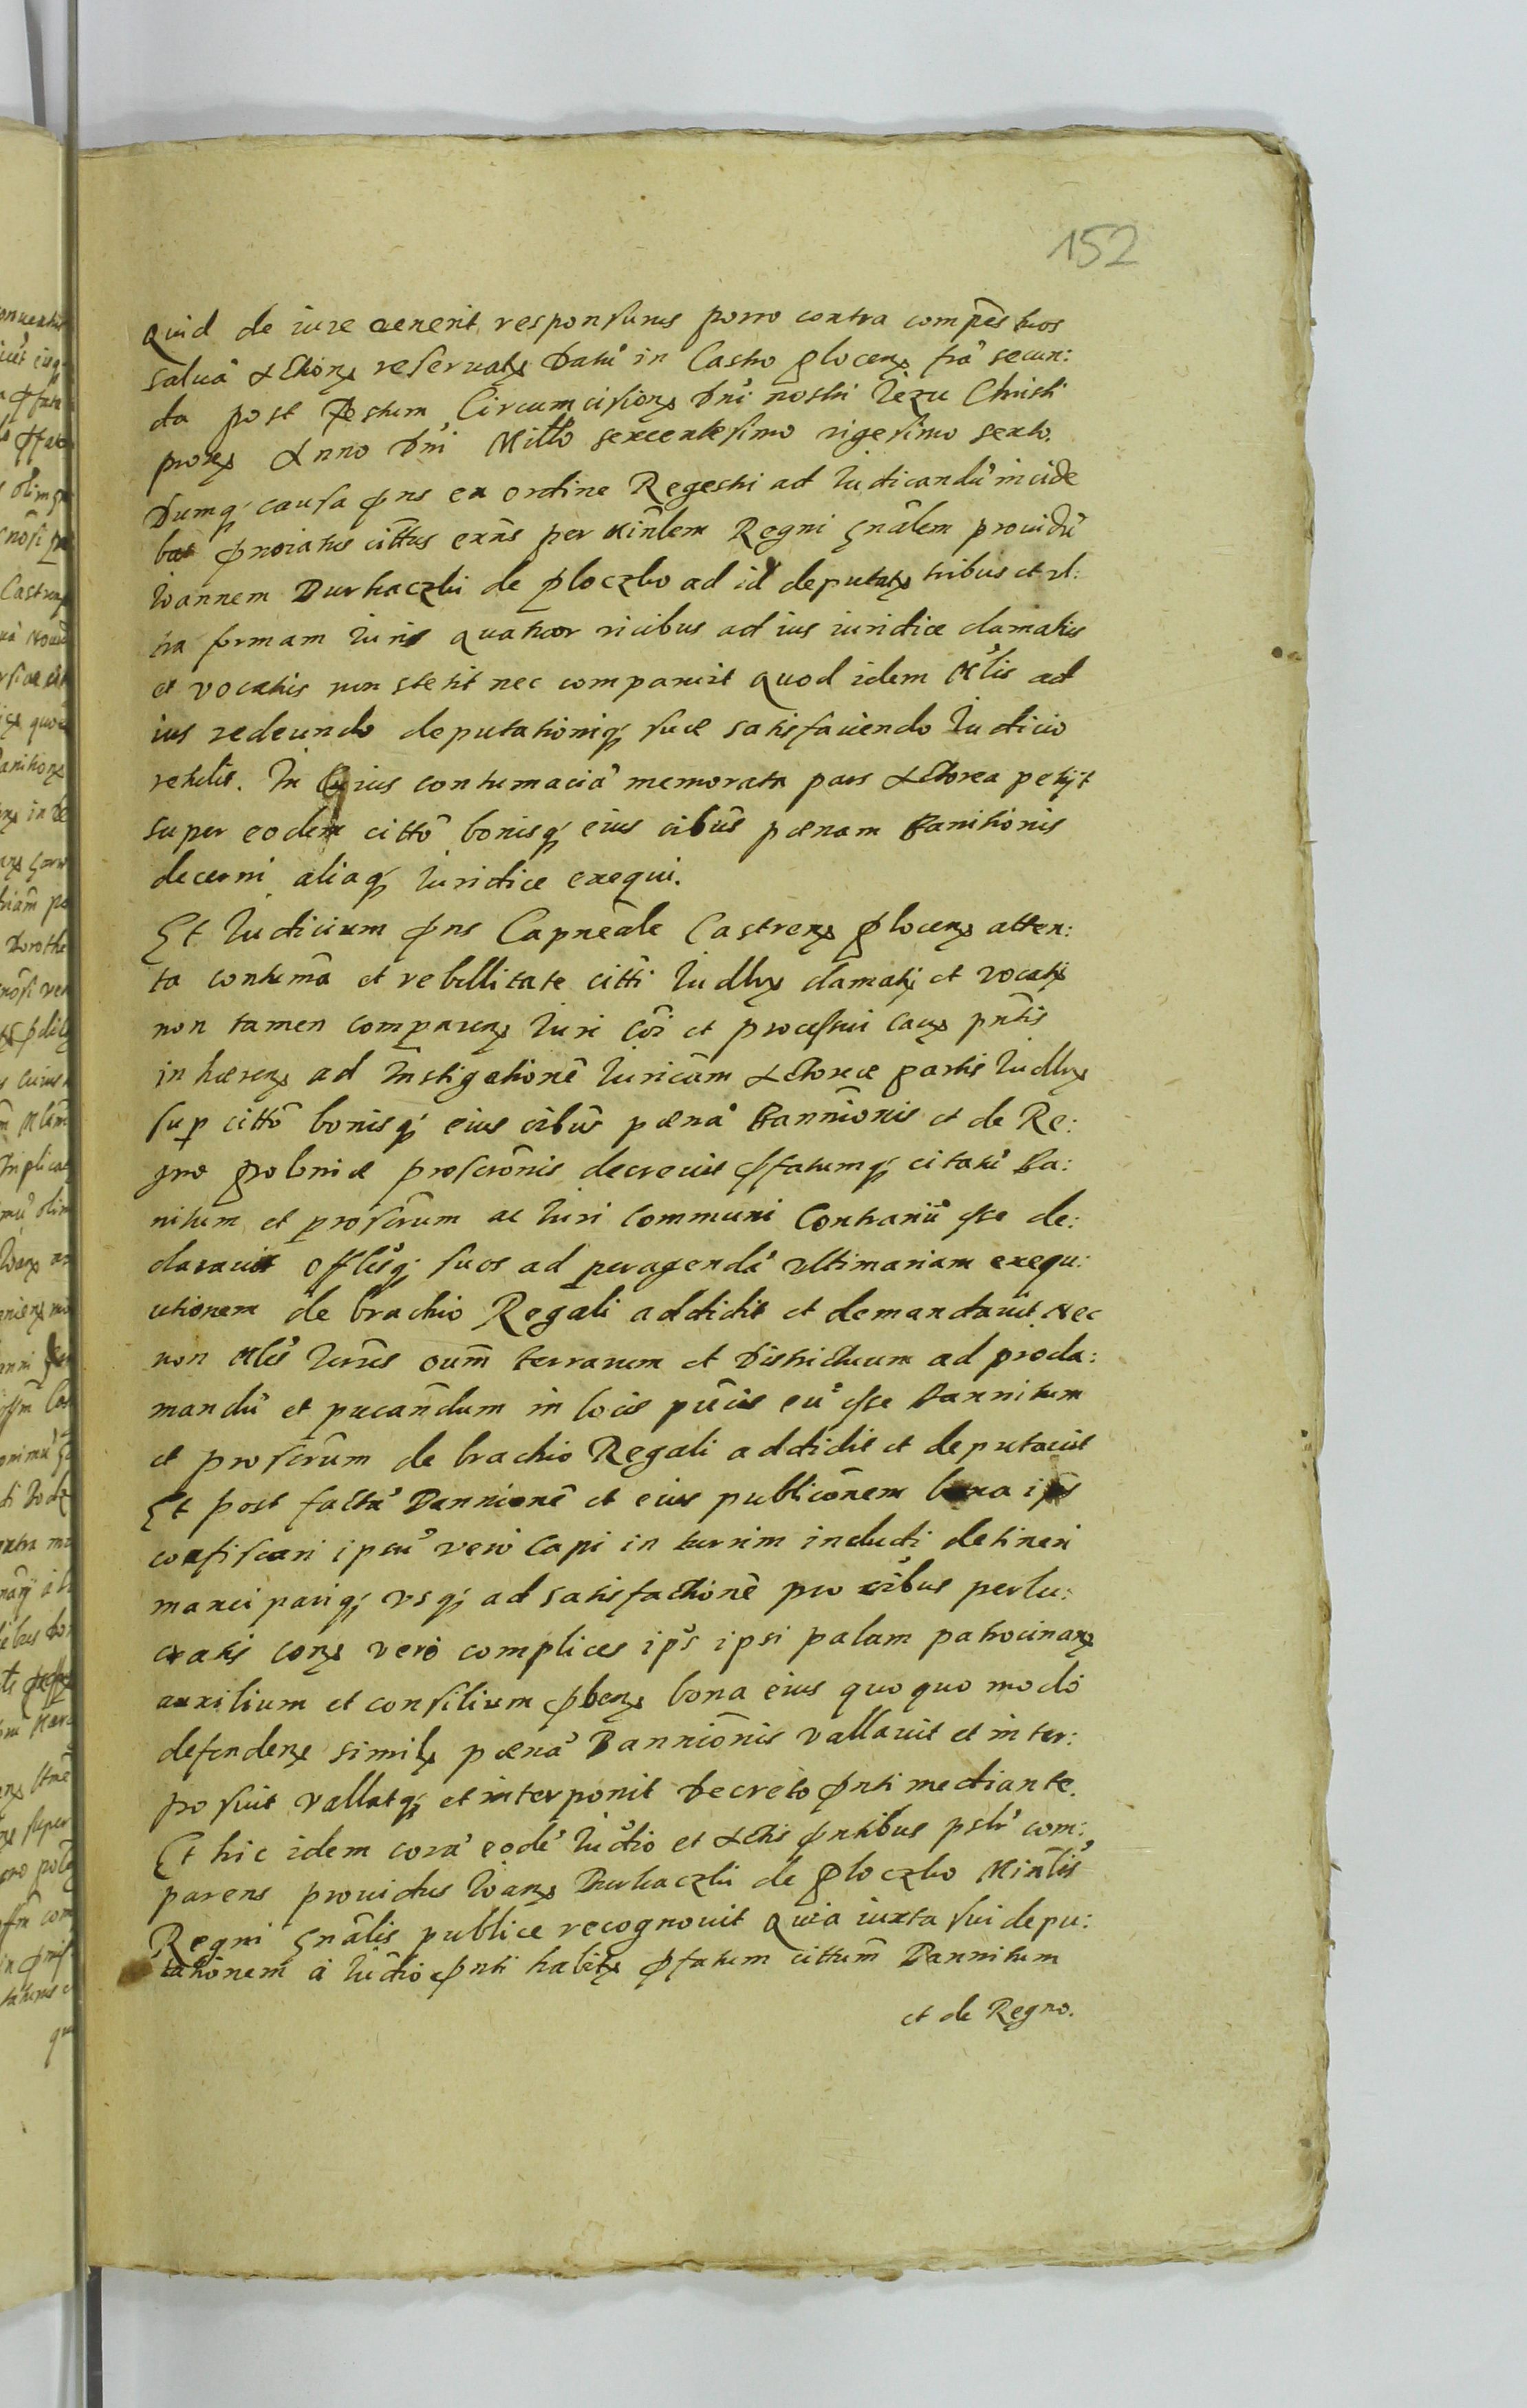 152
Quid de iure venerit responsurus porro contra compēs tuos
salvā Actionę reservatę Datū in Castro Plocenę frā secun:
da post Festum Circumcisionę Dni nostri Iezu Christi
proxę Anno Dni Millo sexcentesimo vigesimo sexto.
Dumq; causa pns ex ordine Regestri ad Iudicandū incide
bat pnoiatus cittus exns per Minlem Regni Gnālem providū
Ioannem Durkaczki de Ploczko ad id deputatę tribus et vl:
tra formam Iuris quatuor vicibus ad ius iuridice clamatus
et vocatus non stetit nec comparuit quod idem Mlis ad
ius redeundo deputationiq; suæ satisfaciendo Iudicio
retulit. In Cuius contumaciā memorata pars Actorea petyt
super eodem cittō bonisq; eius oibūs pœnam Banitionis
decerni aliaq; Iuridice exequi.
Et Iudicium pns Capneāle Castrenę Plocenę atten:
ta contumā et rebellitate citti Iudlrę clamatj et vocatj
non tamen comparenę Iuri Cōi et processui Causę pntis
inhærenę ad Instigationē Iuricām Actoreæ partis Iudlrę
sup cittō bonisq; eius oibūs pœnā Bannionis et de Re:
gno Poloniæ proscrōnis decrevit pfatumq; citatū Ba:
nitum et proscrūm ac Iuri Communi Contrariū esse de:
claravit Offlēsq; suos ad peragendā Ultimariam exequ:
utionem de brachio Regali addidit et demandavit Nec
non Mlēs Terrēs oūm terrarum et Districtuum ad procla:
mandū et pucāndum in locis pūcis eū esse Bannitum
et proscrūm de brachio Regali addidit et deputavit
Et post factā Bannionē et eius publicōnem bona ips
confiscari ipsū vero Capi in turrim includi detineri
mancipariq; vsq; ad satisfactionē pro oibus perlu:
cratis conę vero complices ips ipsi palam patrocinanę
auxilium et consilium pbenę bona eius quoquo modo
defendenę similę pœnā Bannionis vallavit et inter:
posuit vallatq; et interponit Decreto pnti mediante.
Et hic idem corā eodē Iudio et Actis pntibus pslr com:
parens providus Ioanę Durkaczki de Ploczko Minlis
Regni Gnālis publice recognovit Quia iuxta sui depu:
tationem a Iudio pnti habitę pfatum cittum Bannitum
et de Regno.